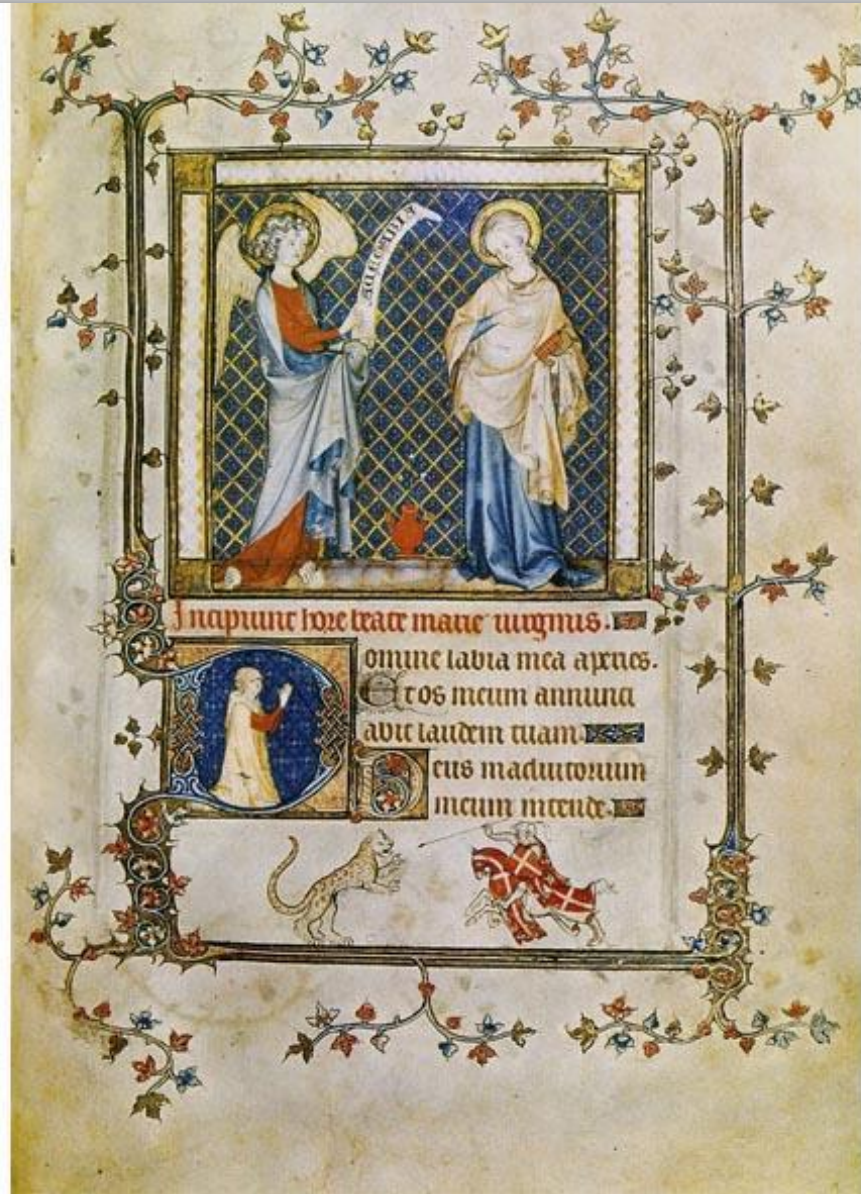 Incipiunt hore beate marie uirginis.
Domine labia mea aperies.
Et os meum annunci
abit laudem tuam.
Deus in adiutorium
meum intende.